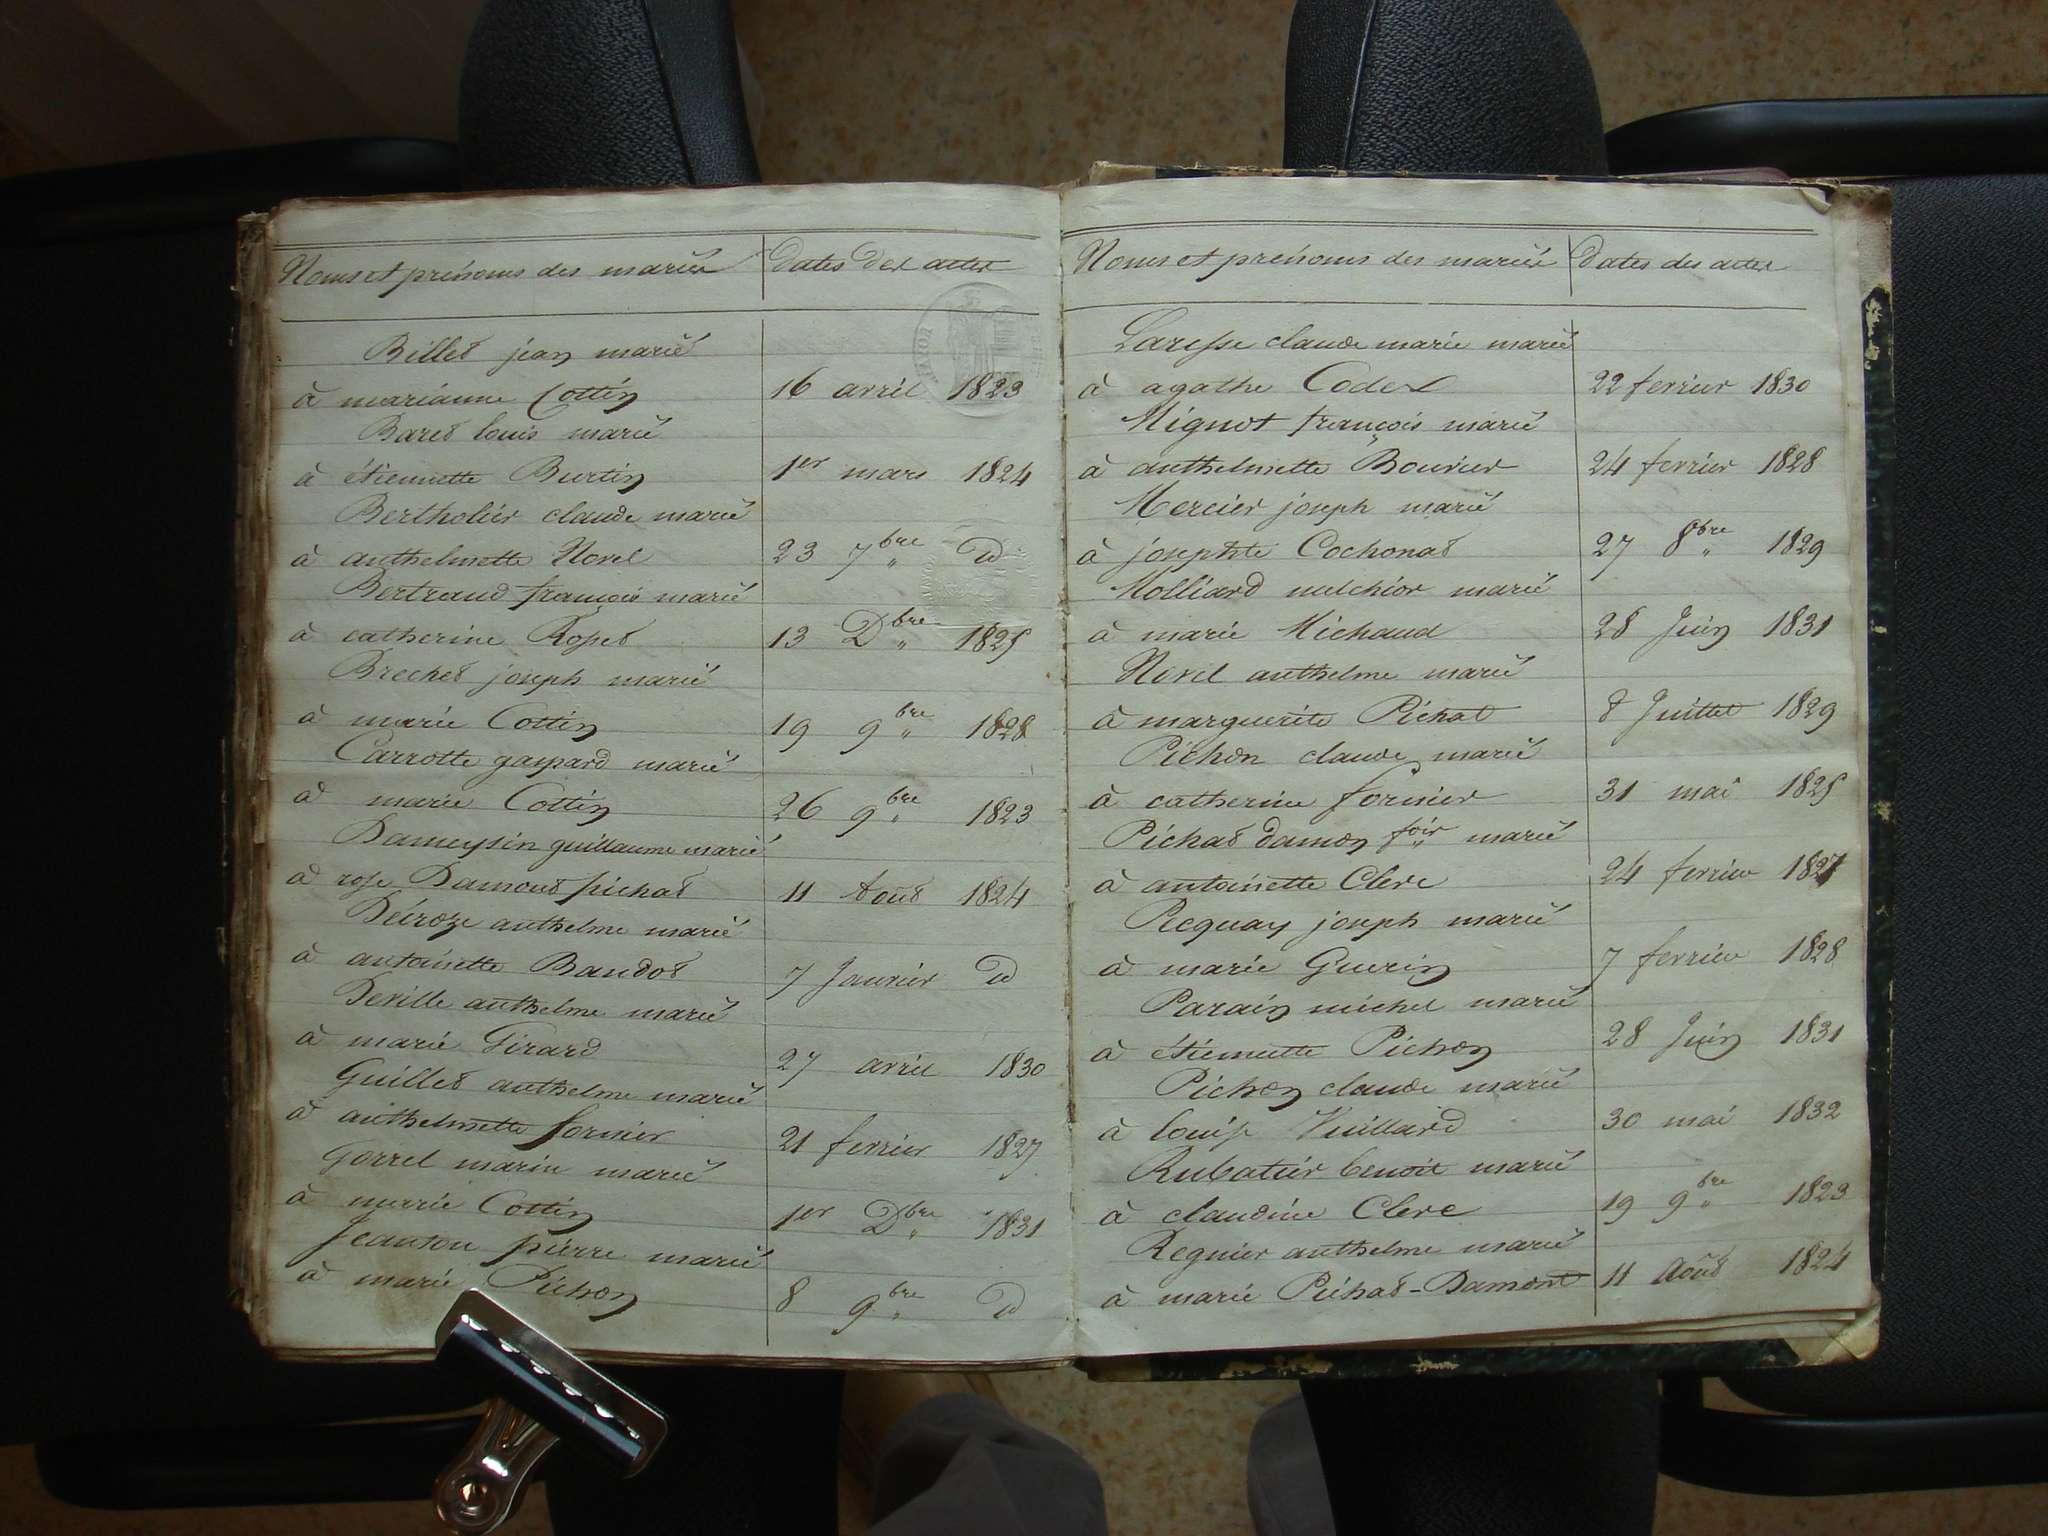 Noms et prénoms des mariés dates des actes
Billet jean marié
à marianne Cottin 16 avril 1823
Baret louis marié
à étiennette Burtin 1er mars 1824
Bertholier claude marié
à anthelmette Novel 23 7bre d
Bertrand françois marié
à catherine Ropet 13 Dbre 1825
Brechet joseph marié
à marie Cottin 19 9bre 1828
Carrotte gaspard marié
à marie Cottin 26 9bre 1823
Dameysin guillaume marié
à rose Damont pichat 11 Aout 1824
Décroze anthelme marié
à antoinette Baudot 7 Janvier d
Deville anthelme marié
à marie Girard 27 avril 1830
Guillet anthelme marié
à anthelmette fornier 21 fevrier 1827
Gorrel marin marié
à marie Cottin 1er Dbre 1831
Jeanton pierre marié
à marie Pichon 8 9bre d
Noms et prénoms des mariés dates des actes
claude marie marié
à agathe Codex 22 fevrier 1830
Mignot françois marié
à anthelmette Bouvier 24 fevrier 1828
Mercier joseph marié
à josephte Cochonat 27 8bre 1829
Molliard melchior marié
à marie Michaud 28 Juin 1831
Novel anthelme marié
à marguerite Pichat 8 Juillet 1829
Pichon claude marié
à catherine fornier 31 mai 1825
Pichat damon fois marié
à antoinette Clerc 24 fevrier 1827
Pecquay joseph marié
à marie Guerin 7 fevrier 1828
Parain michel marié
à étiennette Pichon 28 Juin 1831
Pichon claude marié
à louise Vuillard 30 mai 1832
Rubatier benoit marié
à claudine Clerc 19 9bre 1823
Regnier anthelme marié
à marie Pichat-Damont 11 Août 1824